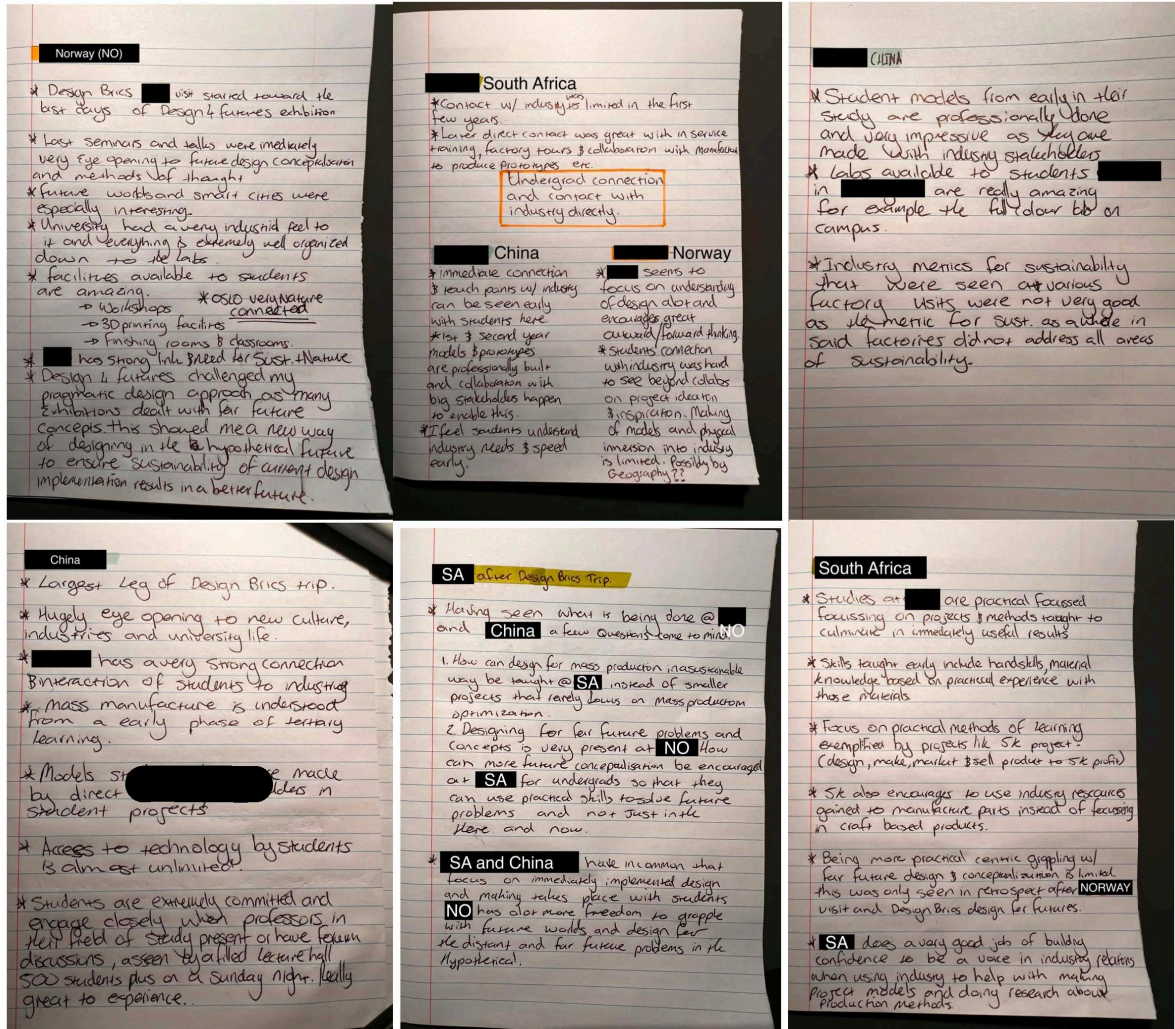 Norway (NO)
* Design Brics visit started toward the
last days of Design 4 futures exhibition
* Last seminars and talks were imediately
very Eye opening to future design conceptualisation
and methods of thought
* future worlds and smart cities were
especially interesting.
* University had a very industrial feel to
it and everything is extremely well organized
down to the labs.
* facilities available to students
are amazing.
→ Workshops
→ 3D printing facilites
→ Finishing rooms & classrooms.
* OSLO very Nature
connected
* has strong link & need for Sust.+Nature
* Design 4 futures challenged my
pragmatic design approach as many
Exhibitions dealt with far future
concepts. this showed me a new way
of designing in the hypothetical future
to ensure sustainability of current design
implementation results in a better future.
South Africa
* Contact w/ industry was limited in the first
few years.
* Later direct contact was great with in service
training, factory tours & collaboration with manufactur
to produce prototypes etc.
Undergrad connection
and contact with
industry directly.
China
* immediate connection
& touch points w/ industry
can be seen early
with students here.
* 1st & second year
models & prototypes
are professionally built
and collaboration with
big stakeholders happen
to enable this.
* I feel students understand
industry needs & speed
early.
Norway
* seems to
focus on understanding
of design alot and
encourages great
outward/forward thinking.
* Students' connection
with industry was hard
to see beyond collabs
on project ideation
& inspiration. Making
of models and physical
imersion into industry
is limited. Possibly by
Geography??
CHINA
* Student models from early in their
study are professionally done
and very impressive as they are
made with industry stakeholders
* Labs available to students
in are really amazing
for example the full colour lab on
campus.
* Industry metrics for sustainability
that were seen at various
factory visits were not very good
as the metric for sust. as a whole in
said factories did not address all areas
of sustainability.
China
* Largest Leg of Design Brics trip.
* Hugely eye opening to new culture,
industries and university life.
* has a very strong connection
& interaction of students to industries
* Mass manufacture is understood
from a early phase of tertiary
learning.
* Models st e made
by direct lders in
student projects
* Access to technology by students
is almost unlimited.
* Students are extremely committed and
engage closely when professors in
their field of study present or have forum
discussions, as seen by a filled lecture hall
500 students plus on a Sunday night. Really
great to experience.
SA after Design Brics Trip.
* Having seen what is being done @
and China NO a few Questions come to mind
1. How can design for mass production in a sustainable
way be taught @ SA instead of smaller
projects that rarely focus on mass production
optimization.
2. Designing for far future problems and
concepts is very present at NO How
can more future conceptualisation be encouraged
at SA for undergrads so that they
can use practical skills to solve future
problems and not Just in the
Here and now.
* SA and China have in common that
focus on immediately implemented design
and making takes place with students
NO has alot more freedom to grapple
with future worlds and design for
the distant and far future problems in the
Hypothetical.
South Africa
* Studies at are practical focussed
focussing on projects & methods taught to
culminate in immediately useful results
* Skills taught early include handskills, material
knowledge based on practical experience with
those materials.
* Focus on practical methods of learning
exemplified by projects like 5k project.
(design, make, market & sell product to 5k profit)
* 5k also encourages to use industry resources
gained to manufacture parts instead of focussing
in craft based products.
* Being more practical centric grappling w/
far future design & conceptualization is limited.
this was only seen in retrospect after NORWAY
visit and Design Brics design for futures.
* SA does a very good job of building
confidence to be a voice in industry relations
when using industry to help with making
project models and doing research about
production methods